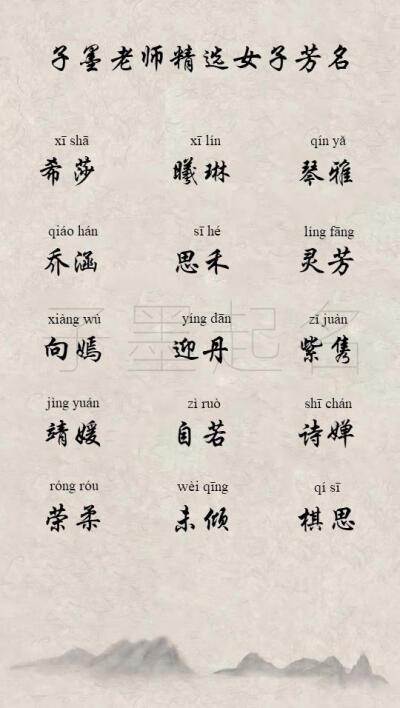 子墨老师精选女子芳名
xī shā xī lín qín yǎ
希莎 曦琳 琴雅
qiáo hán sī hé líng fāng
乔涵 思禾 灵芳
子墨起名
xiàng wú yíng dān zǐ juàn
向嫣 迎丹 紫隽
jìng yuán zì ruò shī chán
靖媛 自若 诗婵
róng róu wèi qīng qí sī
荣柔 未倾 棋思